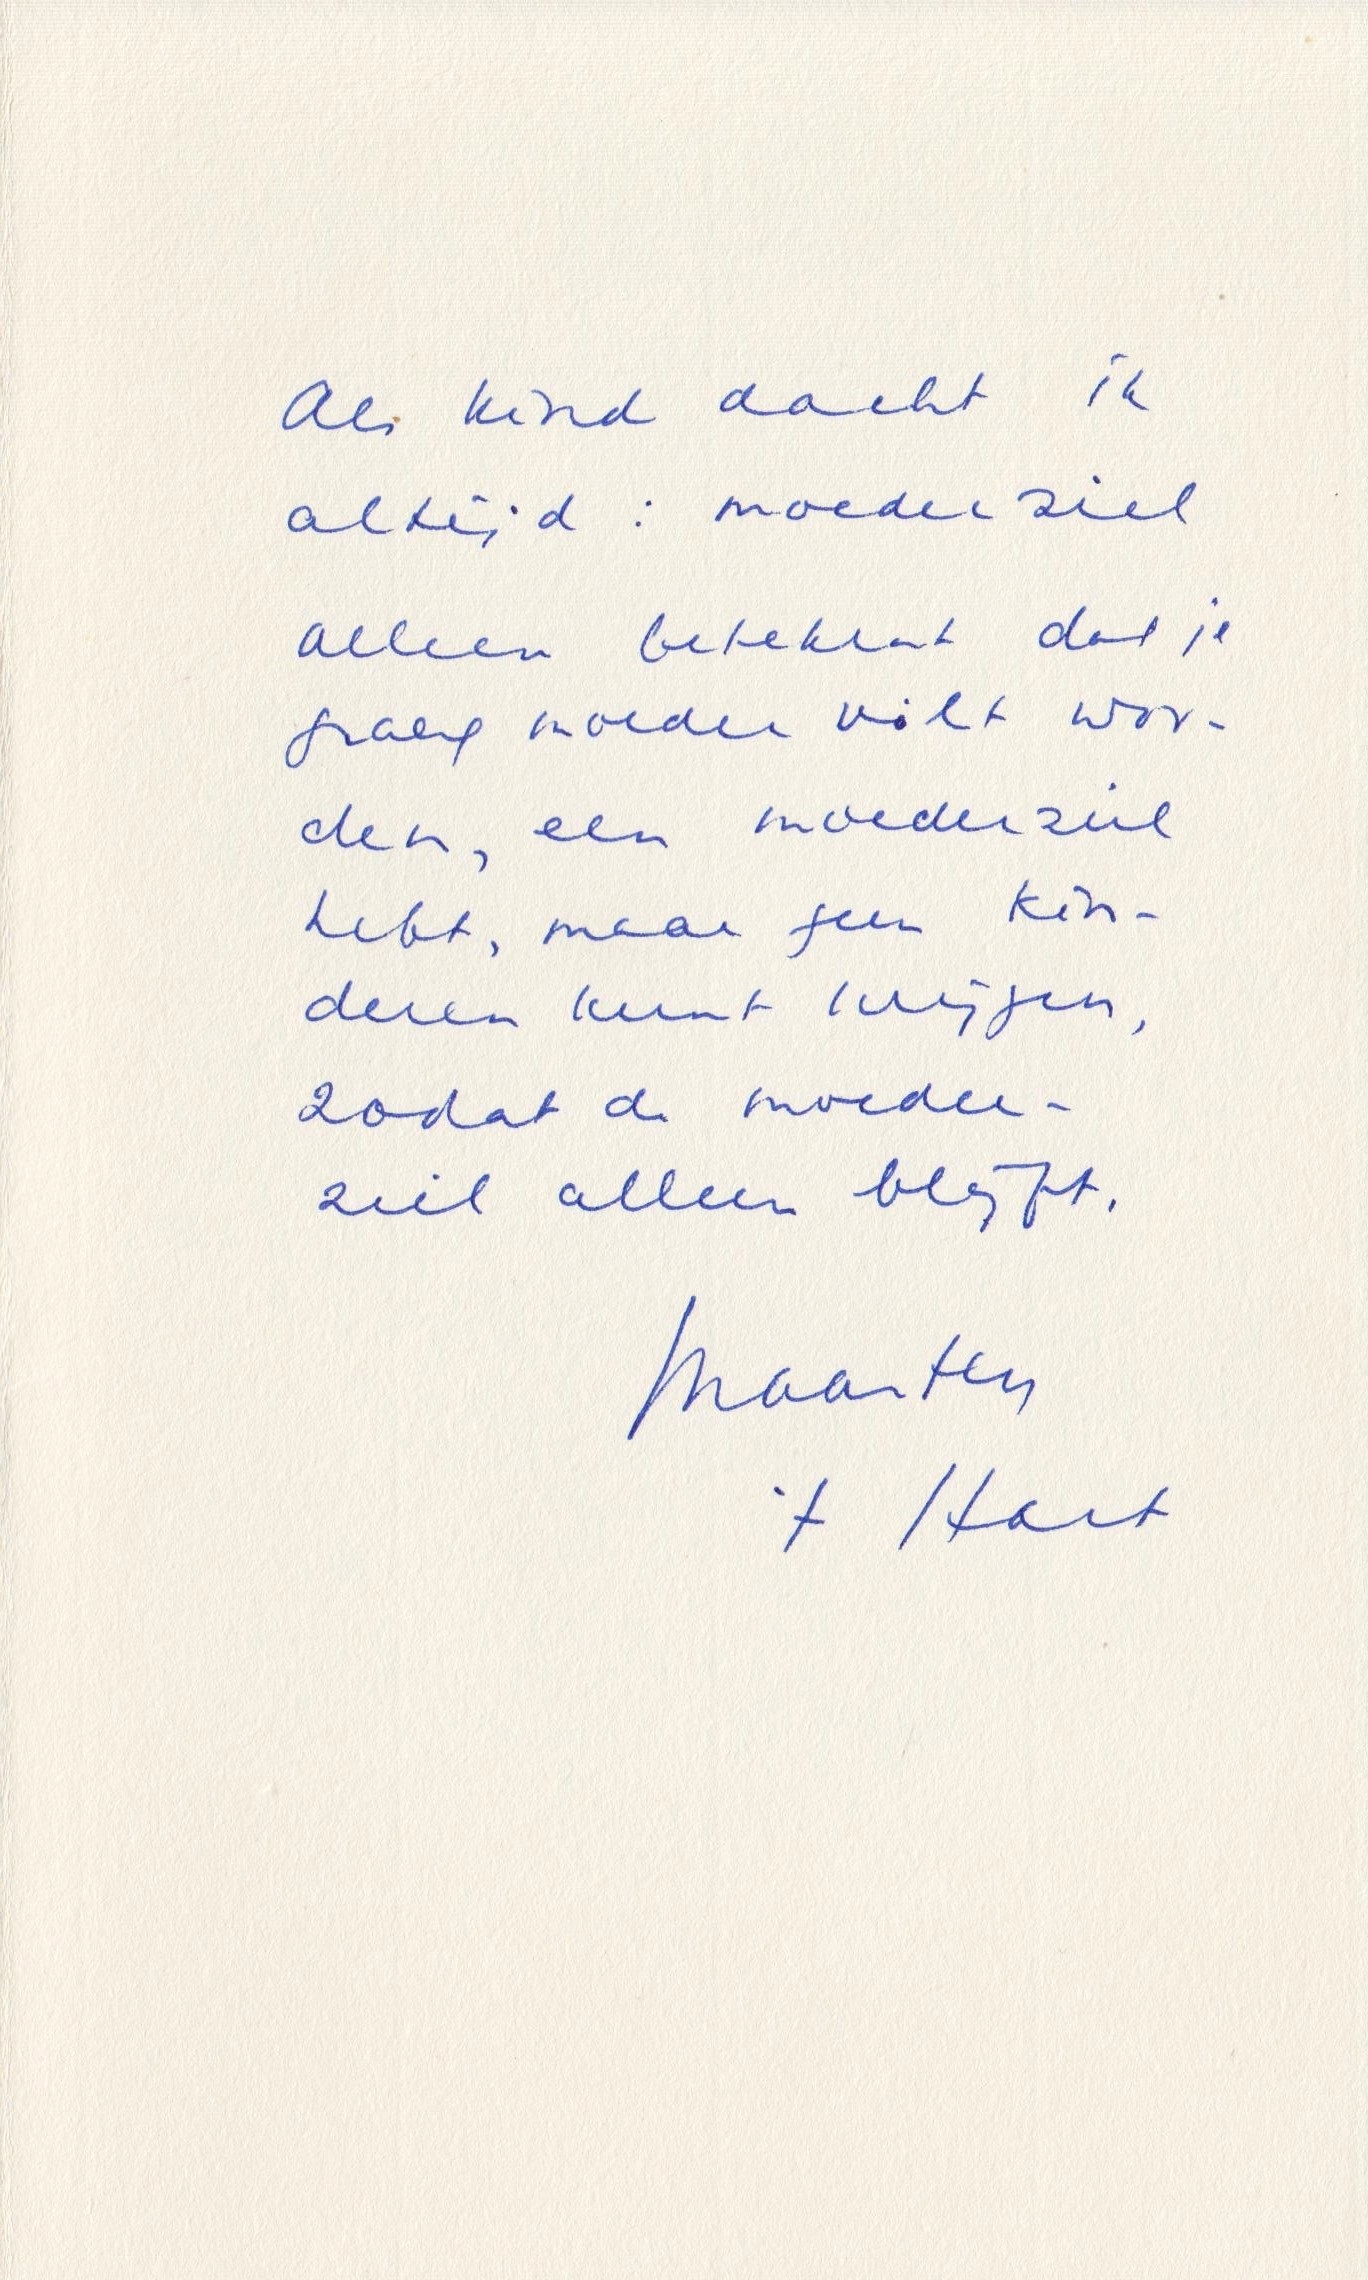 Als kind dacht ik
altijd: moederziel
alleen betekent dat je
graag moeder wilt wor-
den, een moederziel
hebt, maar geen kin-
deren kunt krijgen,
zodat de moeder-
ziel alleen blijft.
Maarten
't Hart